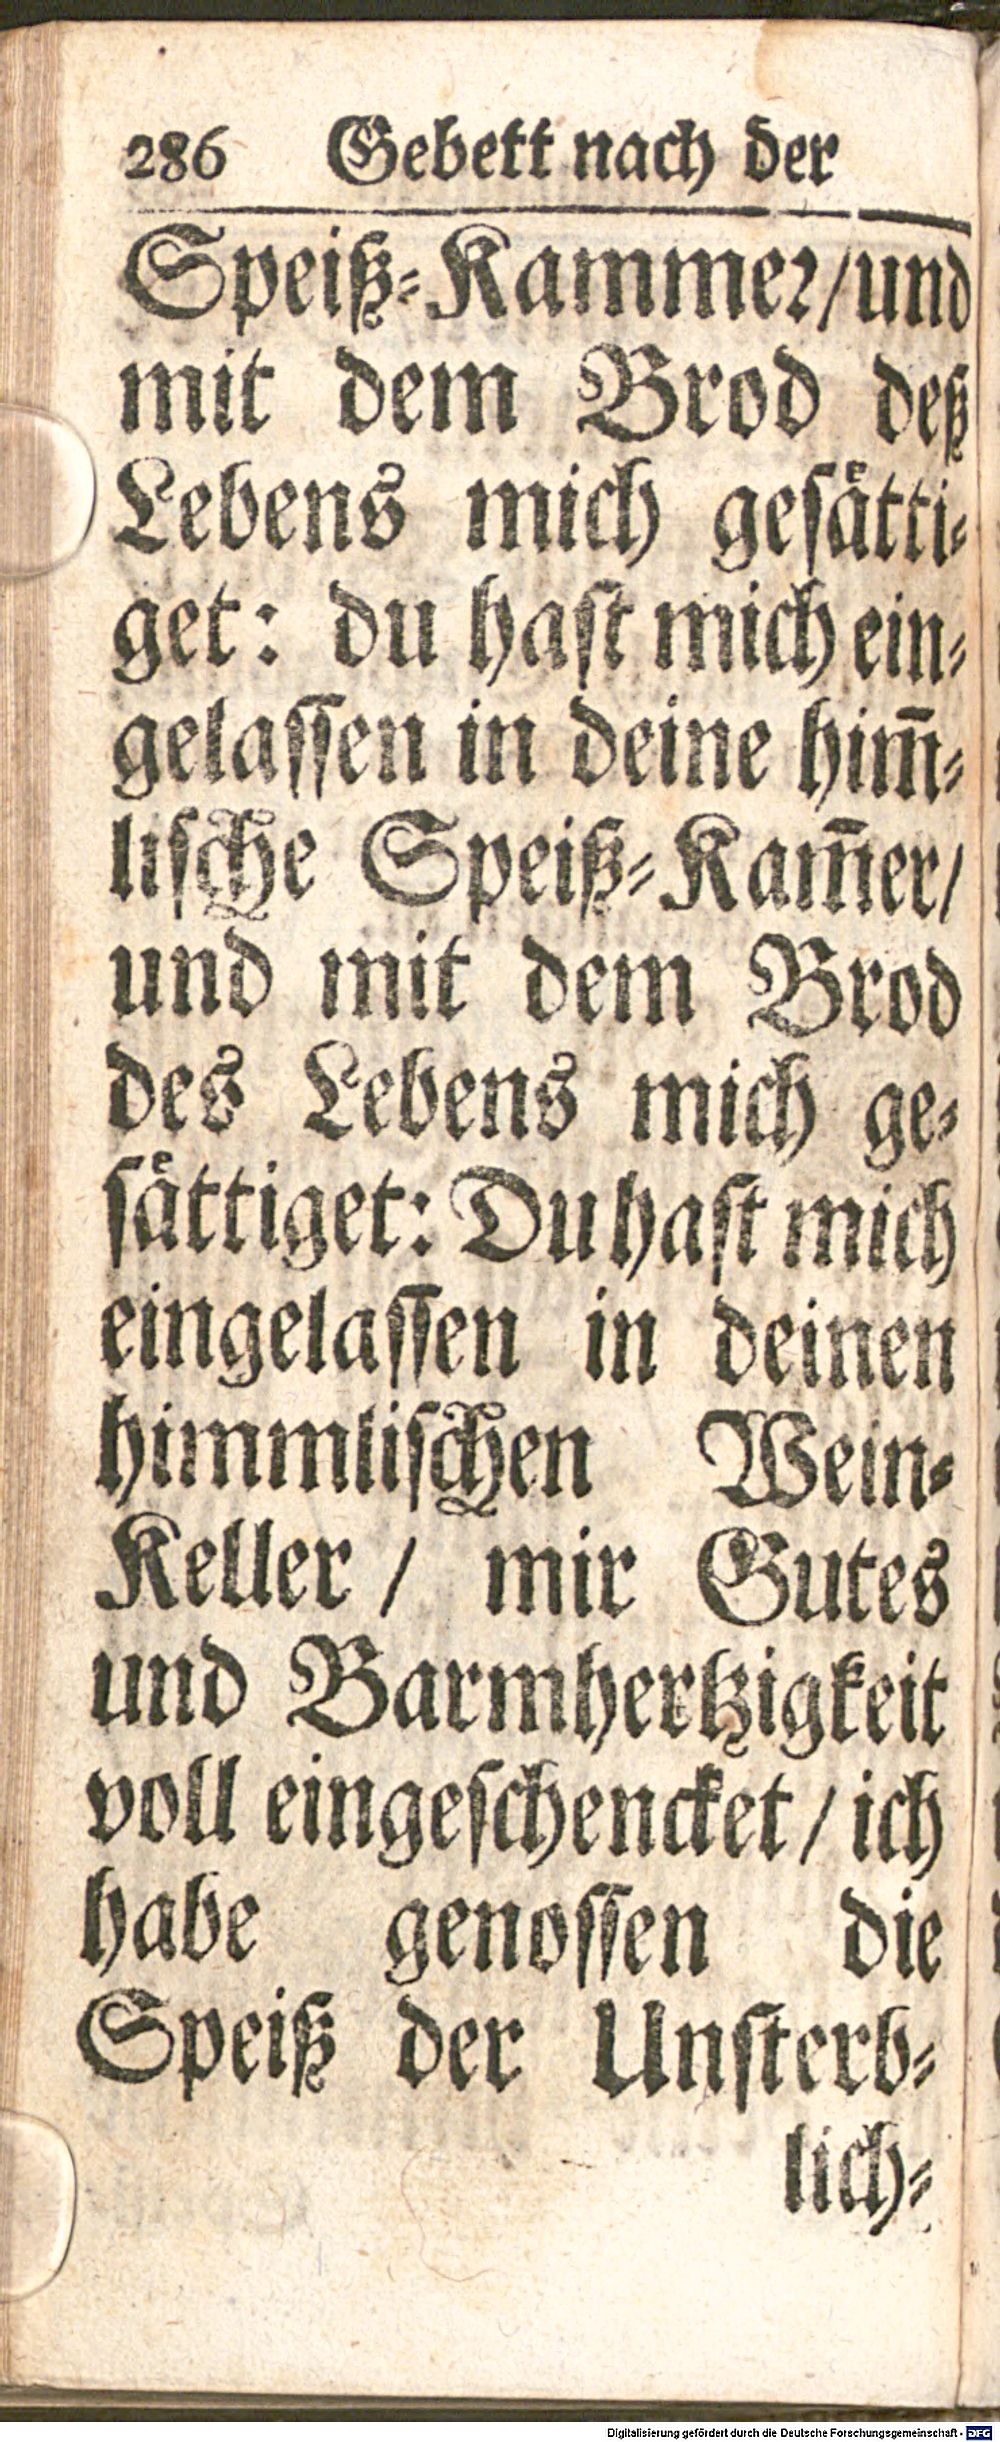 286 Gebett nach der
Speiß-Kammer/und
mit dem Brod deß
Lebens mich gesätti-
get: du hast mich ein-
gelassen in deine him̄-
lische Speiß-Kam̄er/
und mit dem Brod
des Lebens mich ge-
sättiget: Du hast mich
eingelassen in deinen
himmlischen Wein-
Keller / mir Gutes
und Barmhertzigkeit
voll eingeschencket / ich
habe genossen die
Speiß der Unsterb-
lich-
Digitalisierung gefördert durch die Deutsche Forschungsgemeinschaft - DFG